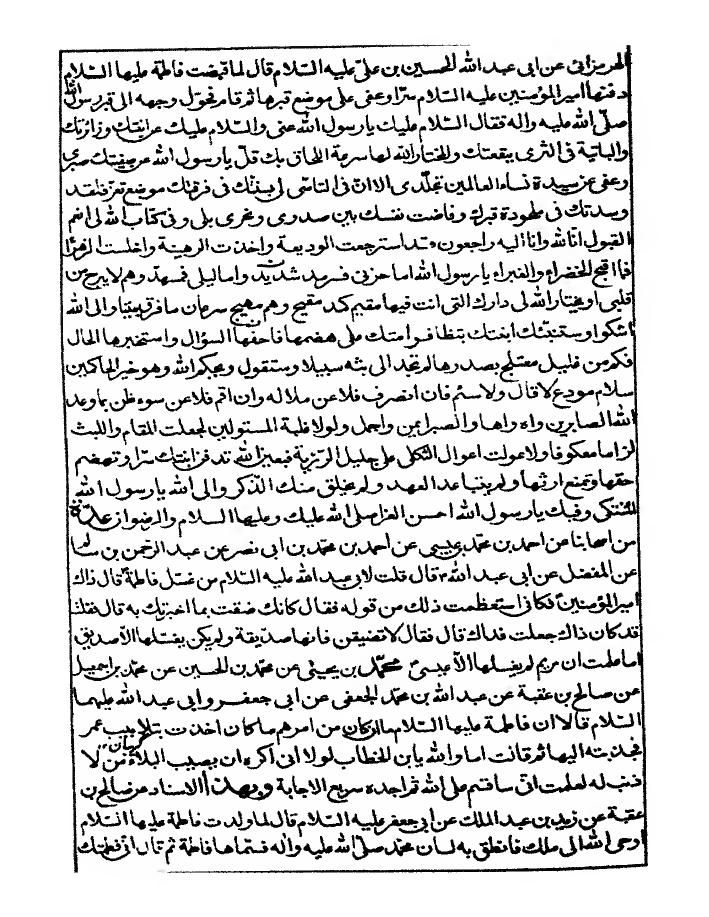 الهرمزاني عن ابي عبد الله الحسين بن علي عليه السلام قال لما قبضت فاطمة عليها السلام
دفنها امير المؤمنين عليه السلام سرا وعفى على موضع قبرها ثم قام فحول وجهه الى قبر رسول الله
صلى الله عليه واله فقال السلام عليك يا رسول الله عني والسلام عليك عن ابنتك وزائرتك
والبائتة في الثرى ببقعتك والمختار الله لها سرعة اللحاق بك قل يا رسول الله عن صفيتك صبري
وعفى عن سيدة نساء العالمين تجلدي الا ان في التاسي لي بسنتك في فرقتك موضع تعز فلقد
وسدتك في ملحودة قبرك وفاضت نفسك بين صدري ونحري بلى وفي كتاب الله لي انعم
القبول انا لله وانا اليه راجعون قد استرجعت الوديعة واخذت الرهينة واخلست الزهراء
فما اقبح الخضراء والغبراء يا رسول الله اما حزني فسرمد واما ليلي فمسهد وهم لا يبرح من
قلبي او يختار الله لي دارك التي انت فيها مقيم كمد مقيح وهم مهيج سرعان ما فرق بيننا والى الله
اشكو وستنبئك ابنتك بتظافر امتك على هضمها فاحفها السؤال واستخبرها الحال
فكم من غليل معتلج بصدرها لم تجد الى بثه سبيلا وستقول ويحكم الله وهو خير الحاكمين
سلام مودع لا قال ولا سئم فان انصرف فلا عن ملالة وان اقم فلا عن سوء ظن بما وعد
الله الصابرين واه واها والصبر ايمن واجمل ولولا غلبة المستولين لجعلت المقام واللبث
لزاما معكوفا ولاعولت اعوال الثكلى على جليل الرزية فبعين الله تدفن ابنتك سرا وتهضم
حقها وتمنع ارثها ولم يتباعد العهد ولم يخلق منك الذكر والى الله يا رسول الله
المشتكى وفيك يا رسول الله احسن العزا صلى الله عليك وعليها السلام والرضوان عدة
من اصحابنا عن احمد بن محمد بن عيسى عن احمد بن محمد بن ابي نصر عن عبد الرحمن بن سالم
عن المفضل عن ابي عبد الله قال قلت لابي عبد الله عليه السلام من غسل فاطمة قال ذاك
امير المؤمنين فكاني استعظمت ذلك من قوله فقال كانك ضقت بما اخبرتك به قال فقلت
قد كان ذاك جعلت فداك قال فقال لا تضيقن فانها صديقة ولم يكن يغسلها الا صديق
اما علمت ان مريم لم يغسلها الا عيسى محمد بن يحيى عن محمد بن الحسين عن محمد بن اسمعيل
عن صالح بن عقبة عن عبد الله بن محمد الجعفي عن ابي جعفر وابي عبد الله عليهما
السلام قالا ان فاطمة عليها السلام لما ان كان من امرهم ما كان اخذت بتلابيب عمر
فجذبته اليها ثم قالت اما والله يا بن الخطاب لولا اني اكره ان يصيب البلاء من لا
ذنب له لعلمت اني ساقسم على الله ثم اجده سريع الاجابة وبهذا الاسناد عن صالح بن
عقبة عن يزيد بن عبد الملك عن ابي جعفر عليه السلام قال لما ولدت فاطمة عليها السلام
اوحى الله الى ملك فانطق به لسان محمد صلى الله عليه واله فسماها فاطمة ثم قال اني فطمتك